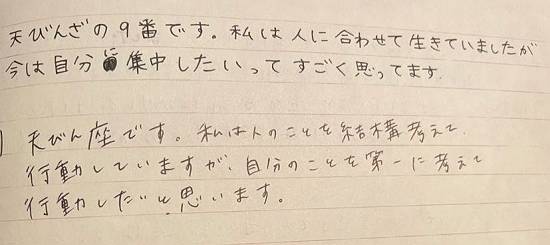 天びんざの9番です。私は人に合わせて生きていましたが
今は自分に集中したいってすごく思ってます.
天びん座です。私は人のことを結構考えて、
行動していますが、自分のことを第一に考えて
行動したいと思います。